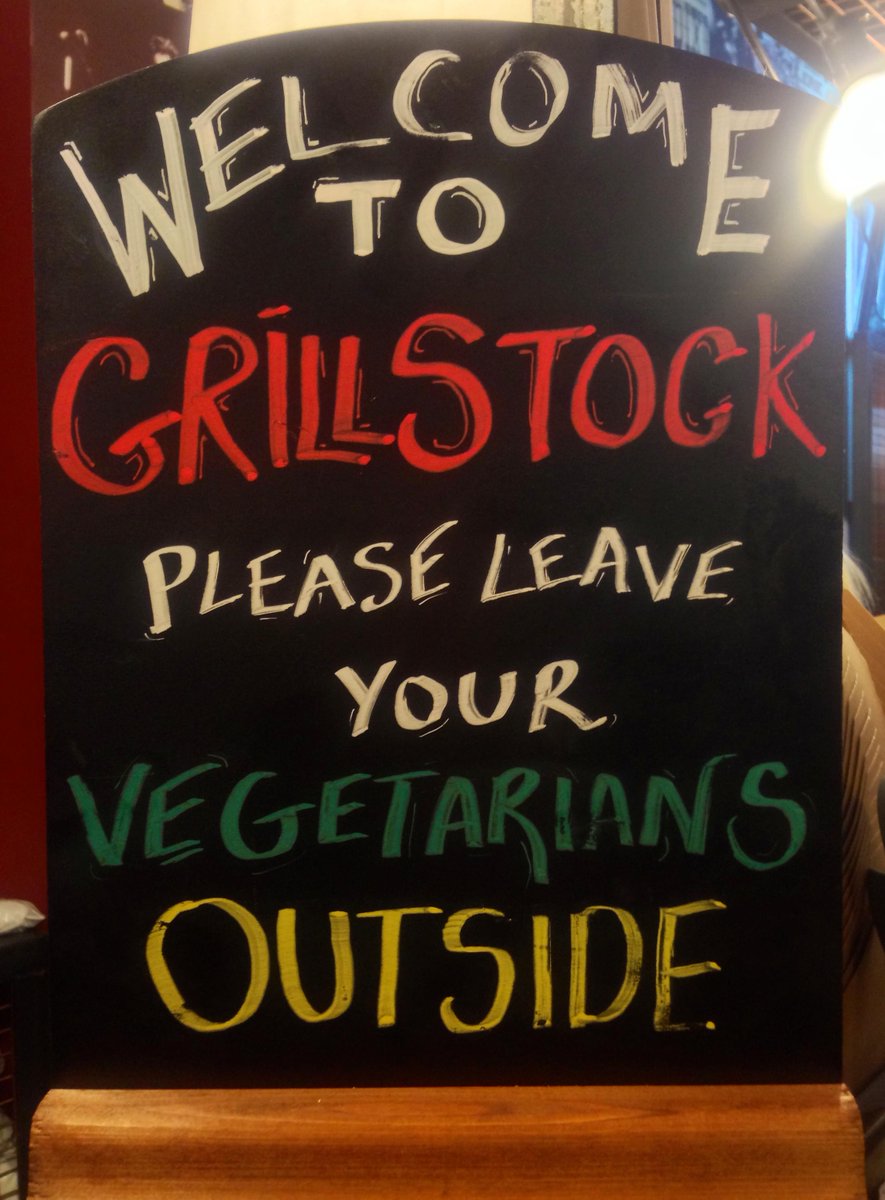 WELCOME
TO
GRILLSTOCK
PLEASE LEAVE
YOUR
VEGETARIANS
OUTSIDE.